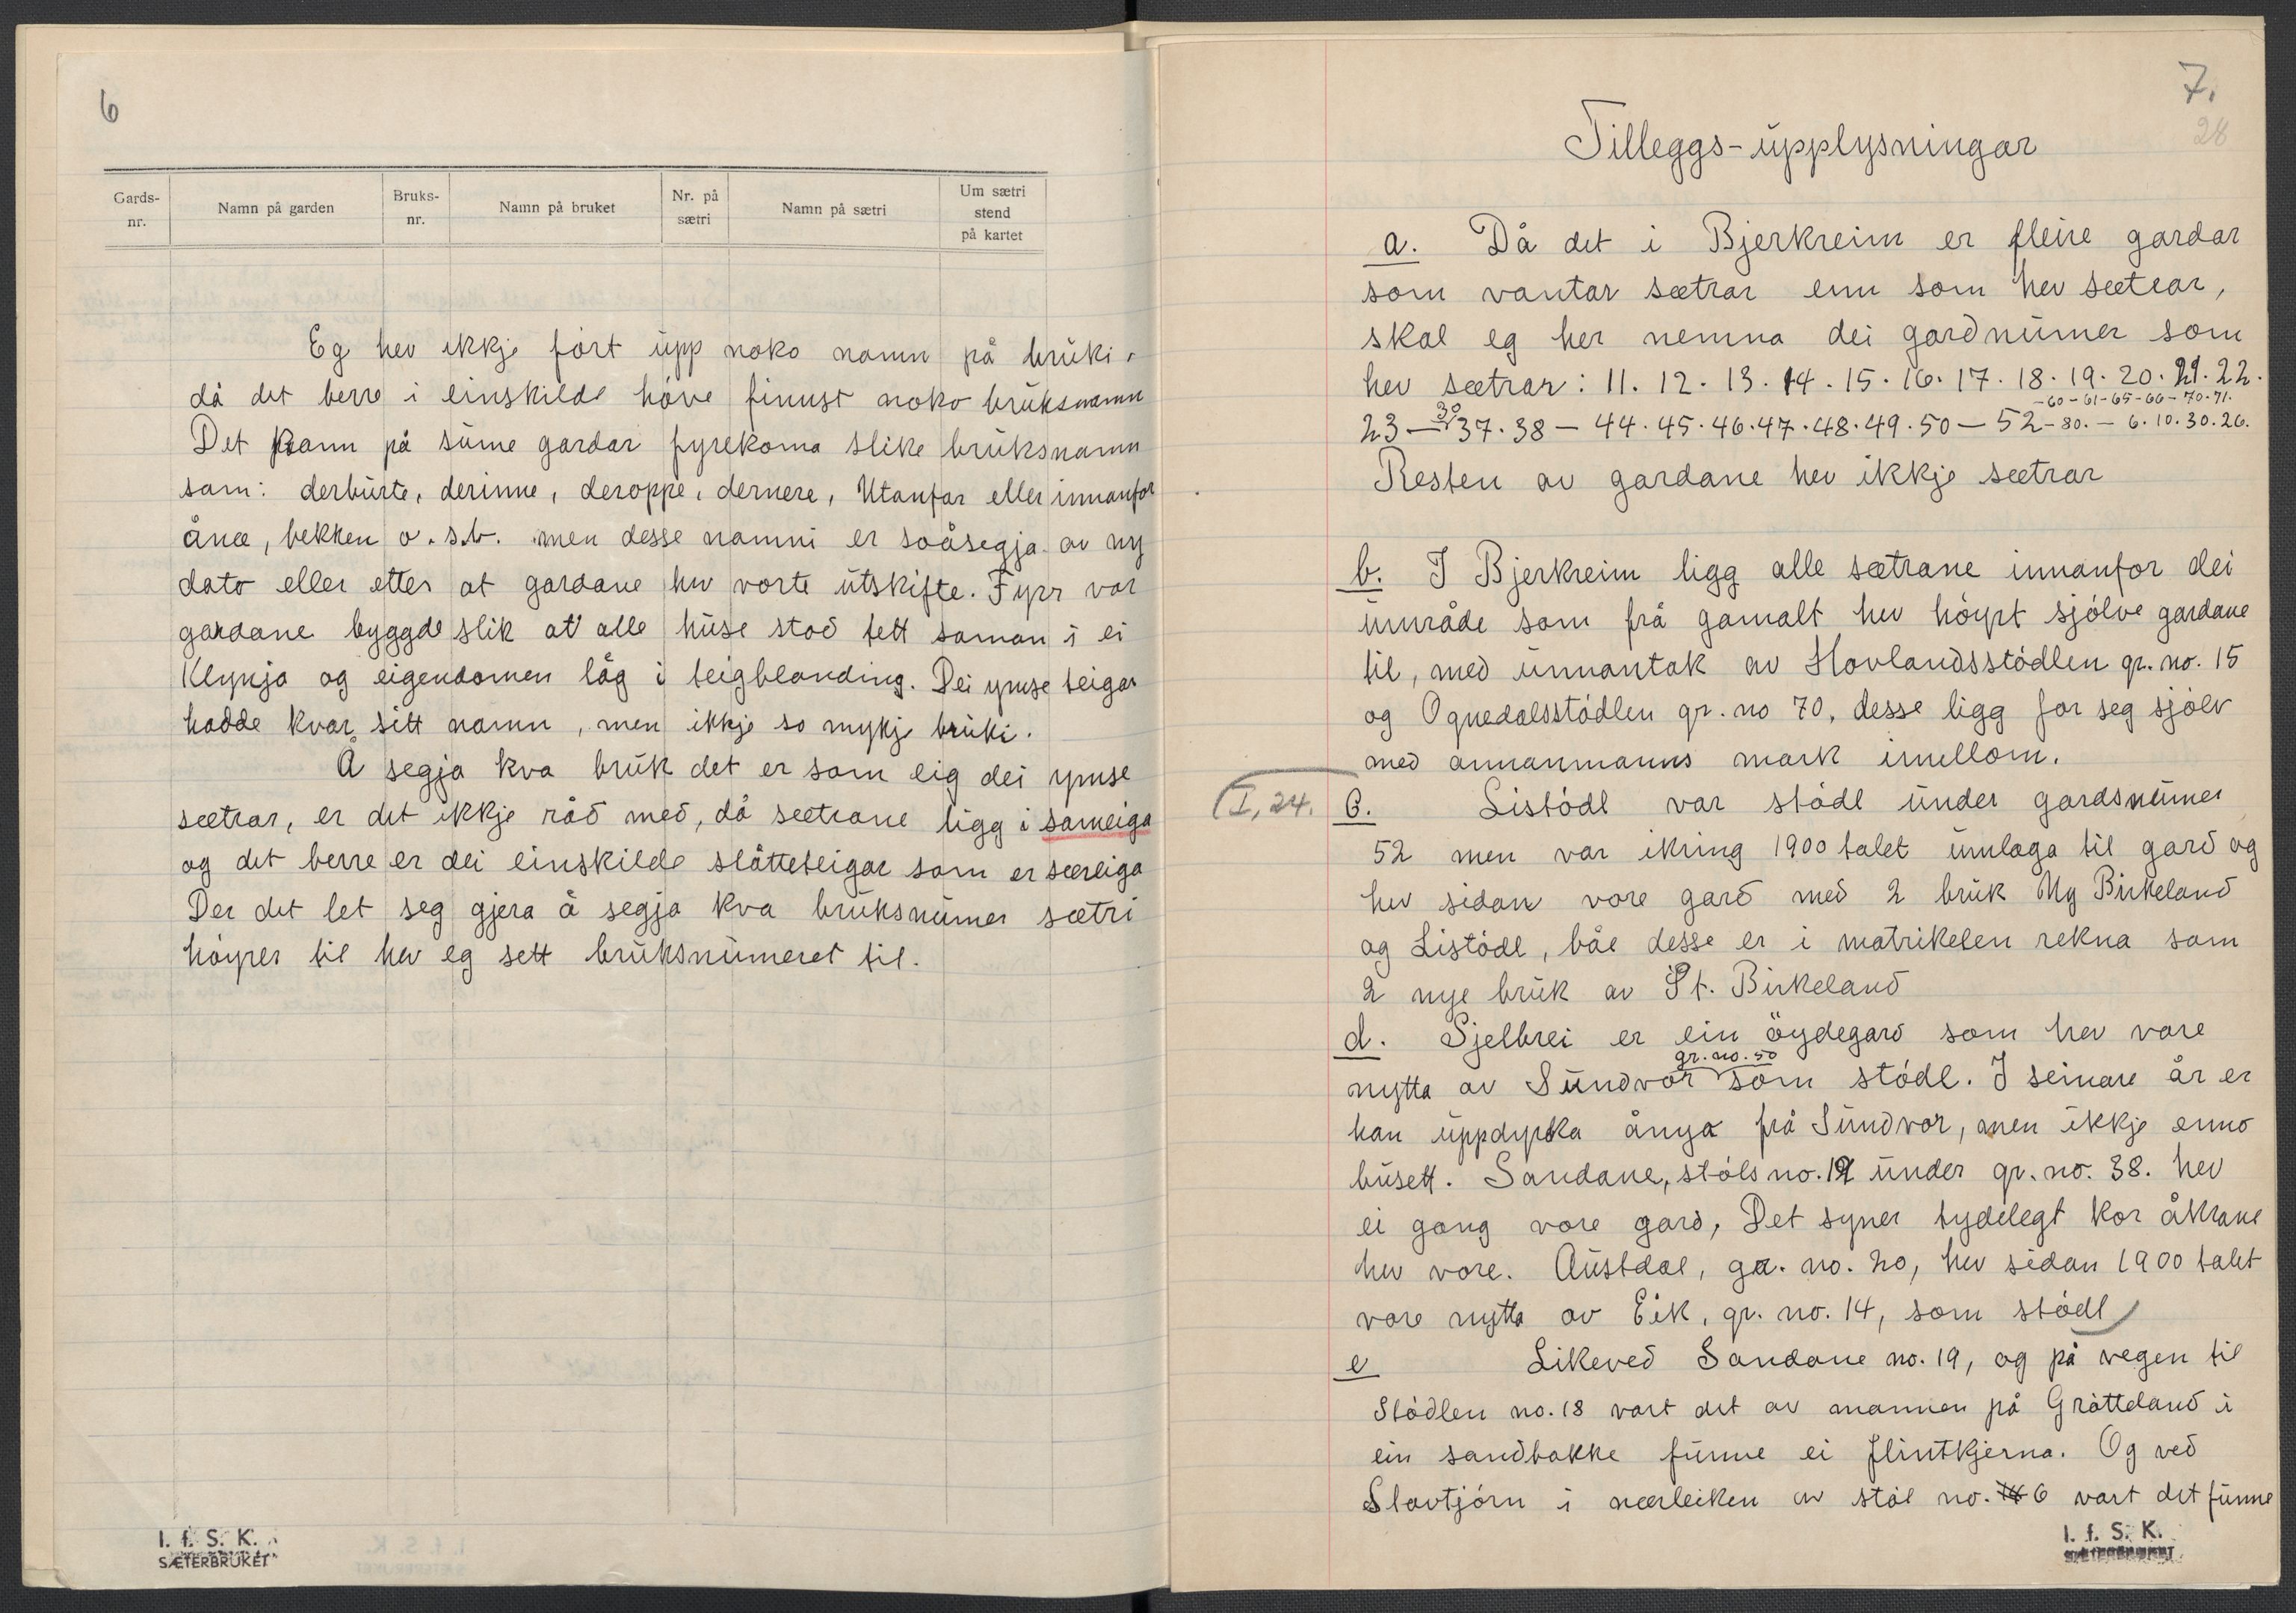 6
Gards-nr. Namn på garden Bruks-nr. Namn på bruket Nr. på sætri Namn på sætri Um sætri stend på kartet
Eg hev ikkje fört upp noko namn på bruki,
då det berre i einskilde höve finnst noko bruksnamn
Det kann på sume gardar fyrekoma slike bruksnamn
som: derburte, derinne, deroppe, dernere, Utanfor eller innanfor
åna, bekken o.s.b. men desse namni er soåsegja av ny
dato eller etter at gardane hev vorte utskifte. Fyrr var
gardane byggde slik at alle huse stod tett saman i ei
Klynja og eigendomen låg i teigblanding. Dei ymse teigar
hadde kvar sitt namn, men ikkje so mykje bruki.
Å segja kva bruk det er som eig dei ymse
sætrar, er det ikkje råd med, då sætrane ligg i sameiga
og det berre er dei einskilde slåtteteigar som er særeiga
Der det let seg gjera å segja kva bruksnumer sætri
höyrer til hev eg sett bruksnumeret til.
I. f. S. K.
SÆTERBRUKET
7.
28
Tilleggs-upplysningar
a. Då det i Bjerkreim er fleire gardar
som vantar sætrar enn som hev sætrar,
skal eg her nemna dei gardnumer som
hev sætrar: 11. 12. 13. 14. 15. 16. 17. 18. 19. 20. 21. 22.
-60-61-65-66-70-71.
23 - 30 37. 38 - 44. 45. 46. 47. 48. 49. 50 - 52 - 80. - 6. 10. 30. 26.
Resten av gardane hev ikkje sætrar
b. I Bjerkreim ligg alle sætrane innanfor dei
umråde som frå gamalt hev höyrt sjölve gardane
til, med unnantak av Hovlandsstödlen gr. no. 15
og Ognedalsstödlen gr. no 70, desse ligg for seg sjölv
med annanmanns mark imellom.
I, 24. C. Listödl var stödl under gardsnumer
52 men var ikring 1900 talet umlaga til gard og
hev sidan vore gard med 2 bruk Ny Birkeland
og Listödl, båe desse er i matrikelen rekna som
2 nye bruk av St. Birkeland
d. Sjelbrei er ein öydegard som hev vore
gr. no. 50
nytta av Sundvor som stödl. I seinare år er
han uppdyrka ånya frå Sundvor, men ikkje enno
busett. Sandane, stöls no. 19 under gr. no. 38. hev
ei gang vore gard, Det syner tydelegt kor åkrane
hev vore. Austdal, gr. no. 20, hev sidan 1900 talet
vore nytta av Eik, gr. no. 14, som stödl
e Likeved Sandane no. 19, og på vegen til
Stödlen no. 18 vart det av mannen på Gråtteland i
ein sandbakke funne ei flintkjerna. Og ved
Slavtjörn i nærleiken av stöl no. 6 vart det funne
I. f. S. K.
SÆTERBRUKET